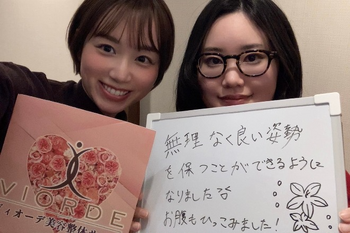 VIORDE
ィオーデ美容整体
無理なく良い姿勢
を保つことができるように
なりました
お腹もひっこみました！